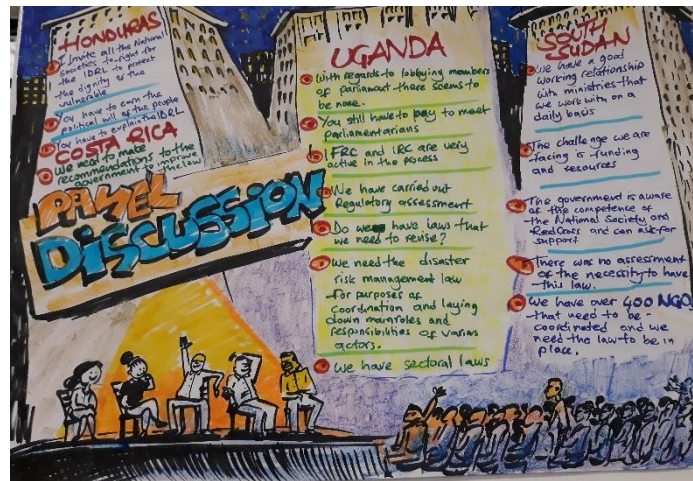 HONDURAS
I invite all the National
societies to fight for
the IDRL to protect
the dignity of the
vulnerable
You have to earn the
political will of the people
You have to explain the IDRL
COSTA RICA
We need to make
recommendations to the
government to improve
the law
PANEL
DISCUSSION
UGANDA
With regards to lobbying members
of parliament there seems to
be none.
You still have to pay to meet
parliamentarians
IFRC and IRC are very
active in the process
We have carried out
Regulatory assessment
Do we have laws that
we need to revise?
We need the disaster
risk management law
for purposes of
coordination and laying
down main roles and
responsibilities of various
actors.
We have sectoral laws
SOUTH
SUDAN
We have a good
working relationship
with ministries that
we work with on a
daily basis
The challenge we are
facing is funding
and resources
The government is aware
of the competence of
the National Society and
Red Cross and can ask for
support
There was no assessment
of the necessity to have
this law.
We have over 400 NGO
that need to be
coordinated and we
need the law to be in
place.